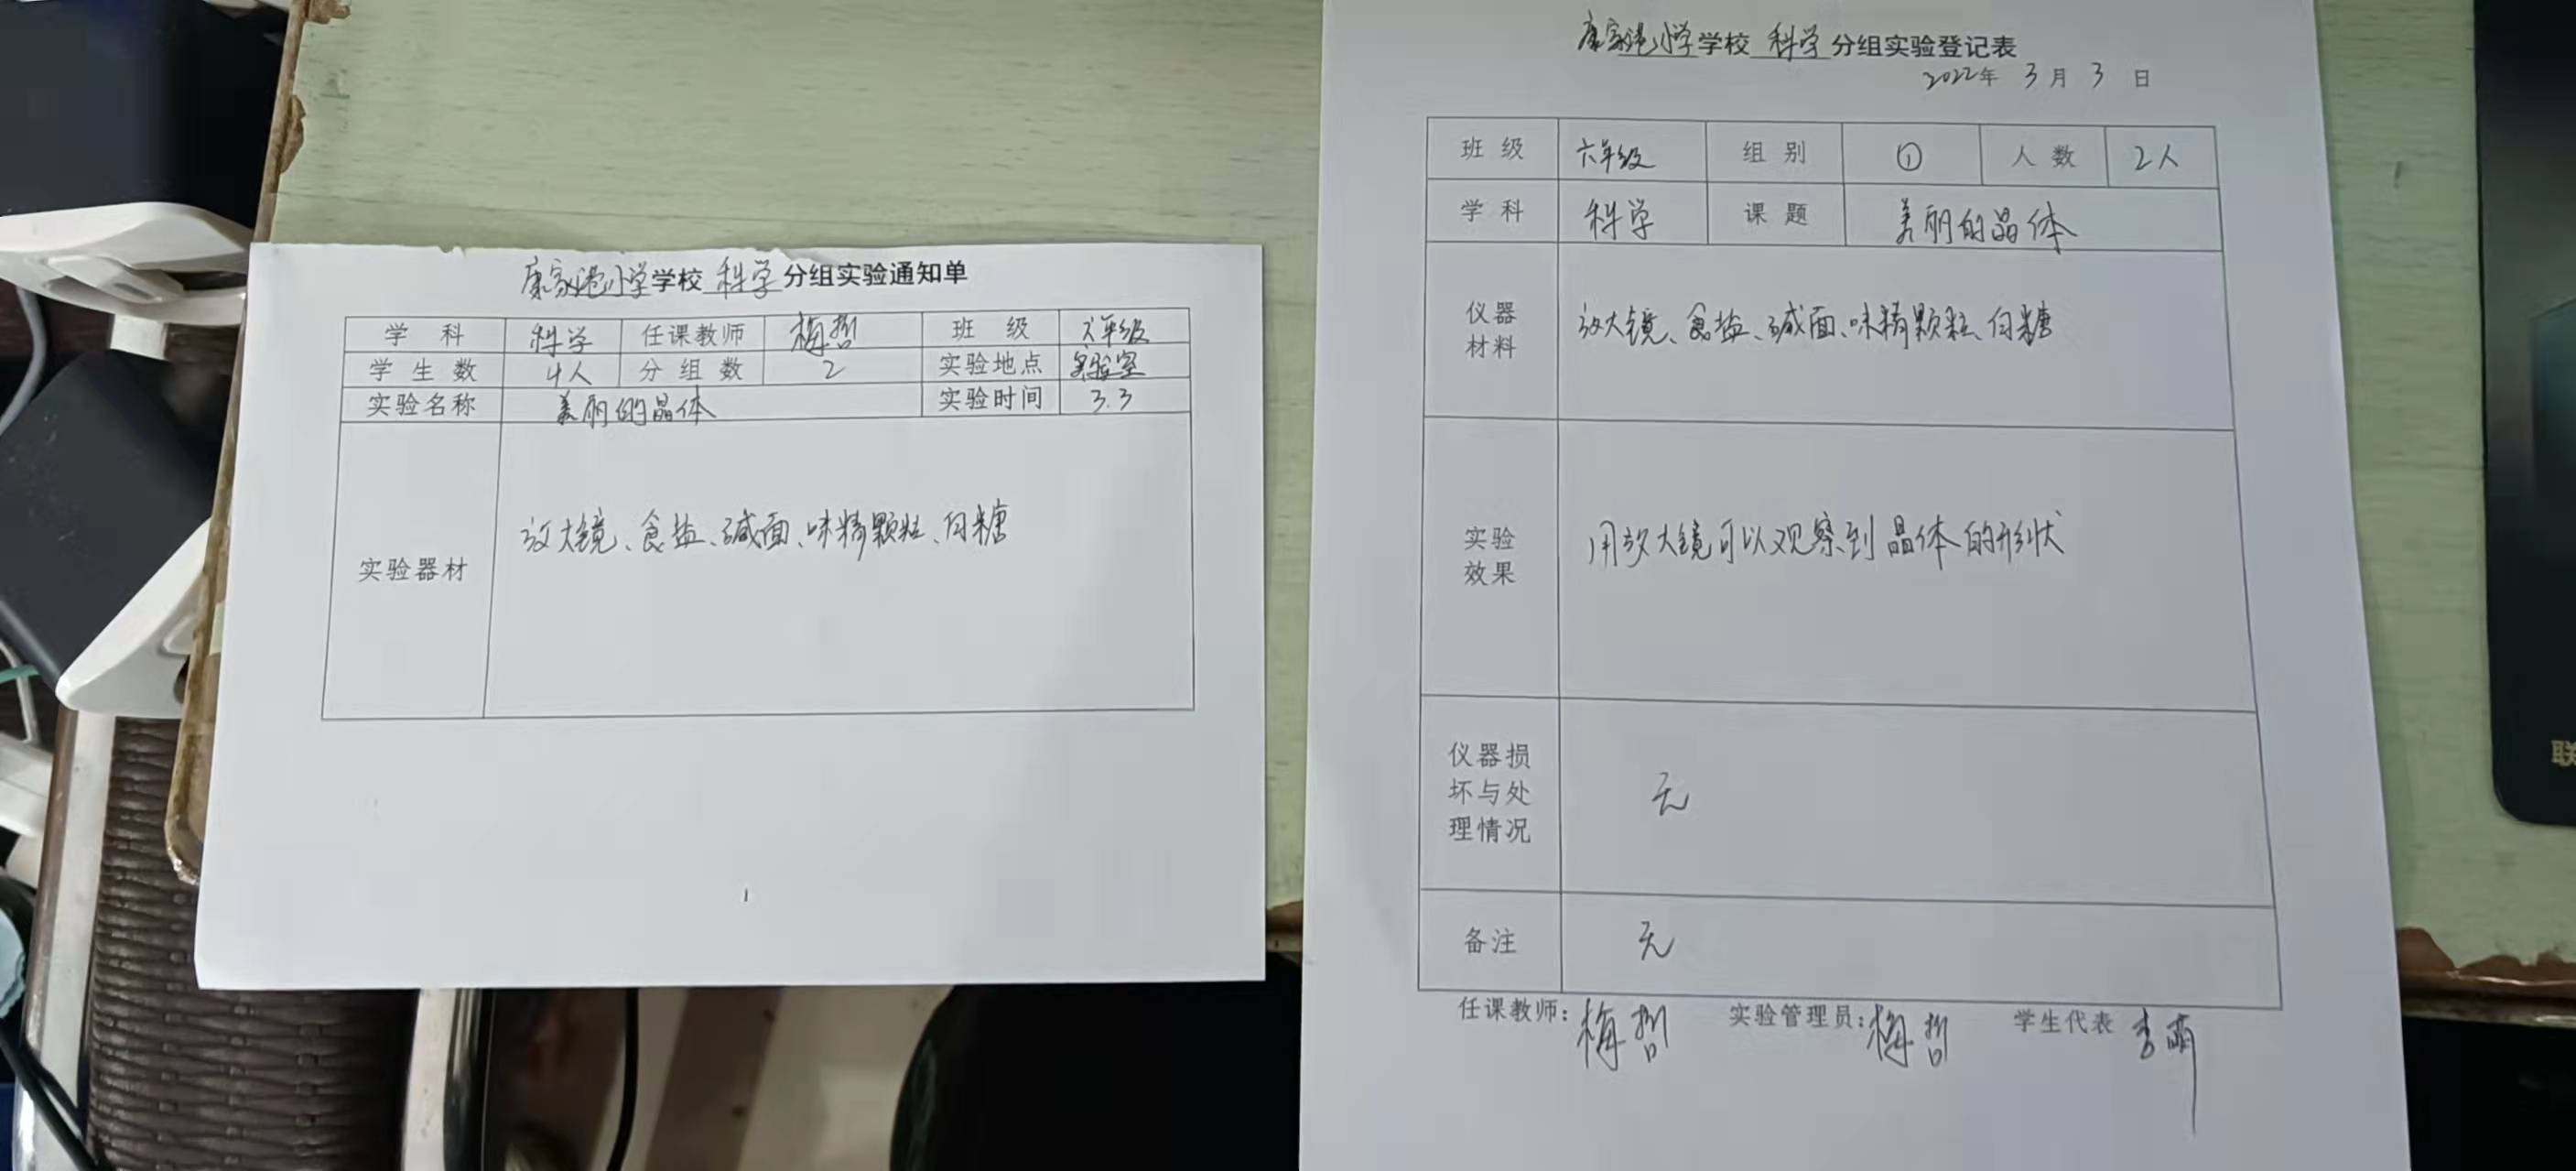 康家港小学学校 科学 分组实验通知单
学科 科学 任课教师 梅哲 班级 六年级
学生数 4人 分组数 2 实验地点 实验室
实验名称 美丽的晶体 实验时间 3.3
实验器材 放大镜、食盐、碱面、味精颗粒、白糖
1
康家港小学学校 科学 分组实验登记表
2022年 3月 3日
班级 六年级 组别 ① 人数 2人
学科 科学 课题 美丽的晶体
仪器
材料
放大镜、食盐、碱面、味精颗粒、白糖
实验
效果
用放大镜可以观察到晶体的形状
仪器损
坏与处
理情况
无
备注 无
任课教师：梅哲 实验管理员：梅哲 学生代表 李萌
联